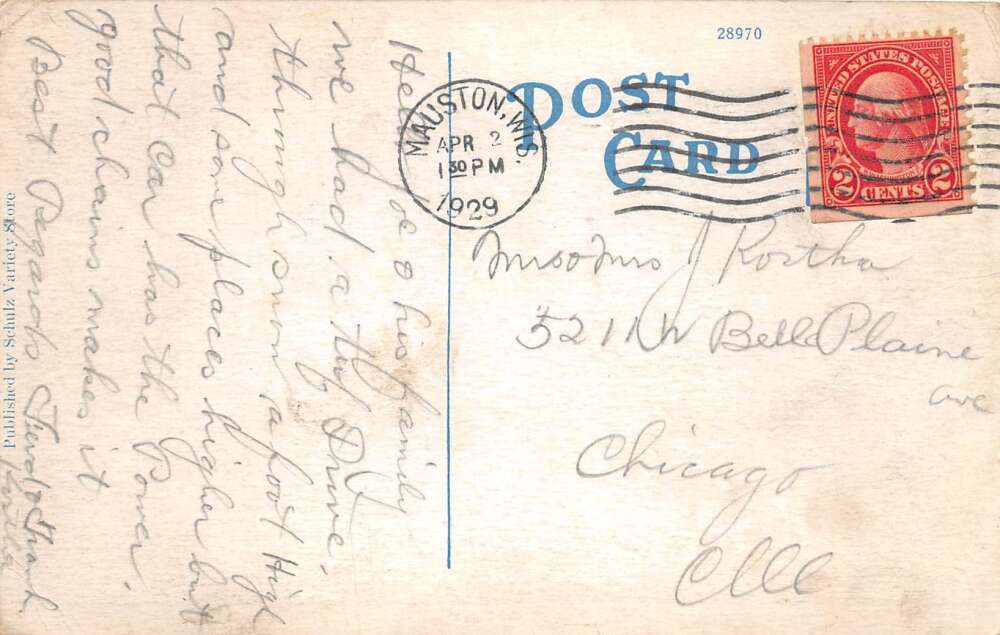 28970
POST
CARD
UNITED STATES POSTAGE
2 CENTS 2
MAUSTON, WIS.
APR 2
1 30 PM
1929
Mr & Mrs J Rortha
5211 W Belle Plaine
ave
Chicago
Ill
Hello Joe & his family
we had a Drive,
through snow a foot High
and some places higher but
that Car has the Power,
good chains makes it
Best Regards Fred & Frank
Rortha
Published by Schulz Variety Store